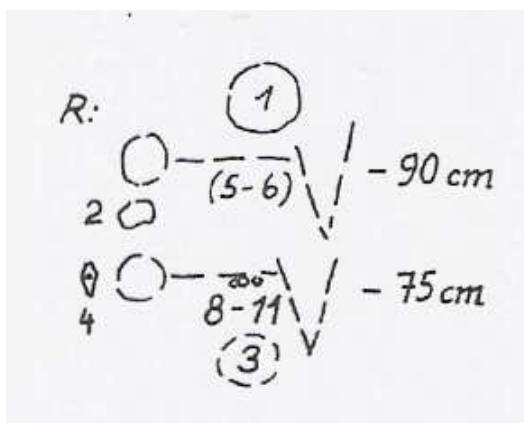 1
R:
(5-6) - 90 cm
2
8-11 - 75 cm
4
3